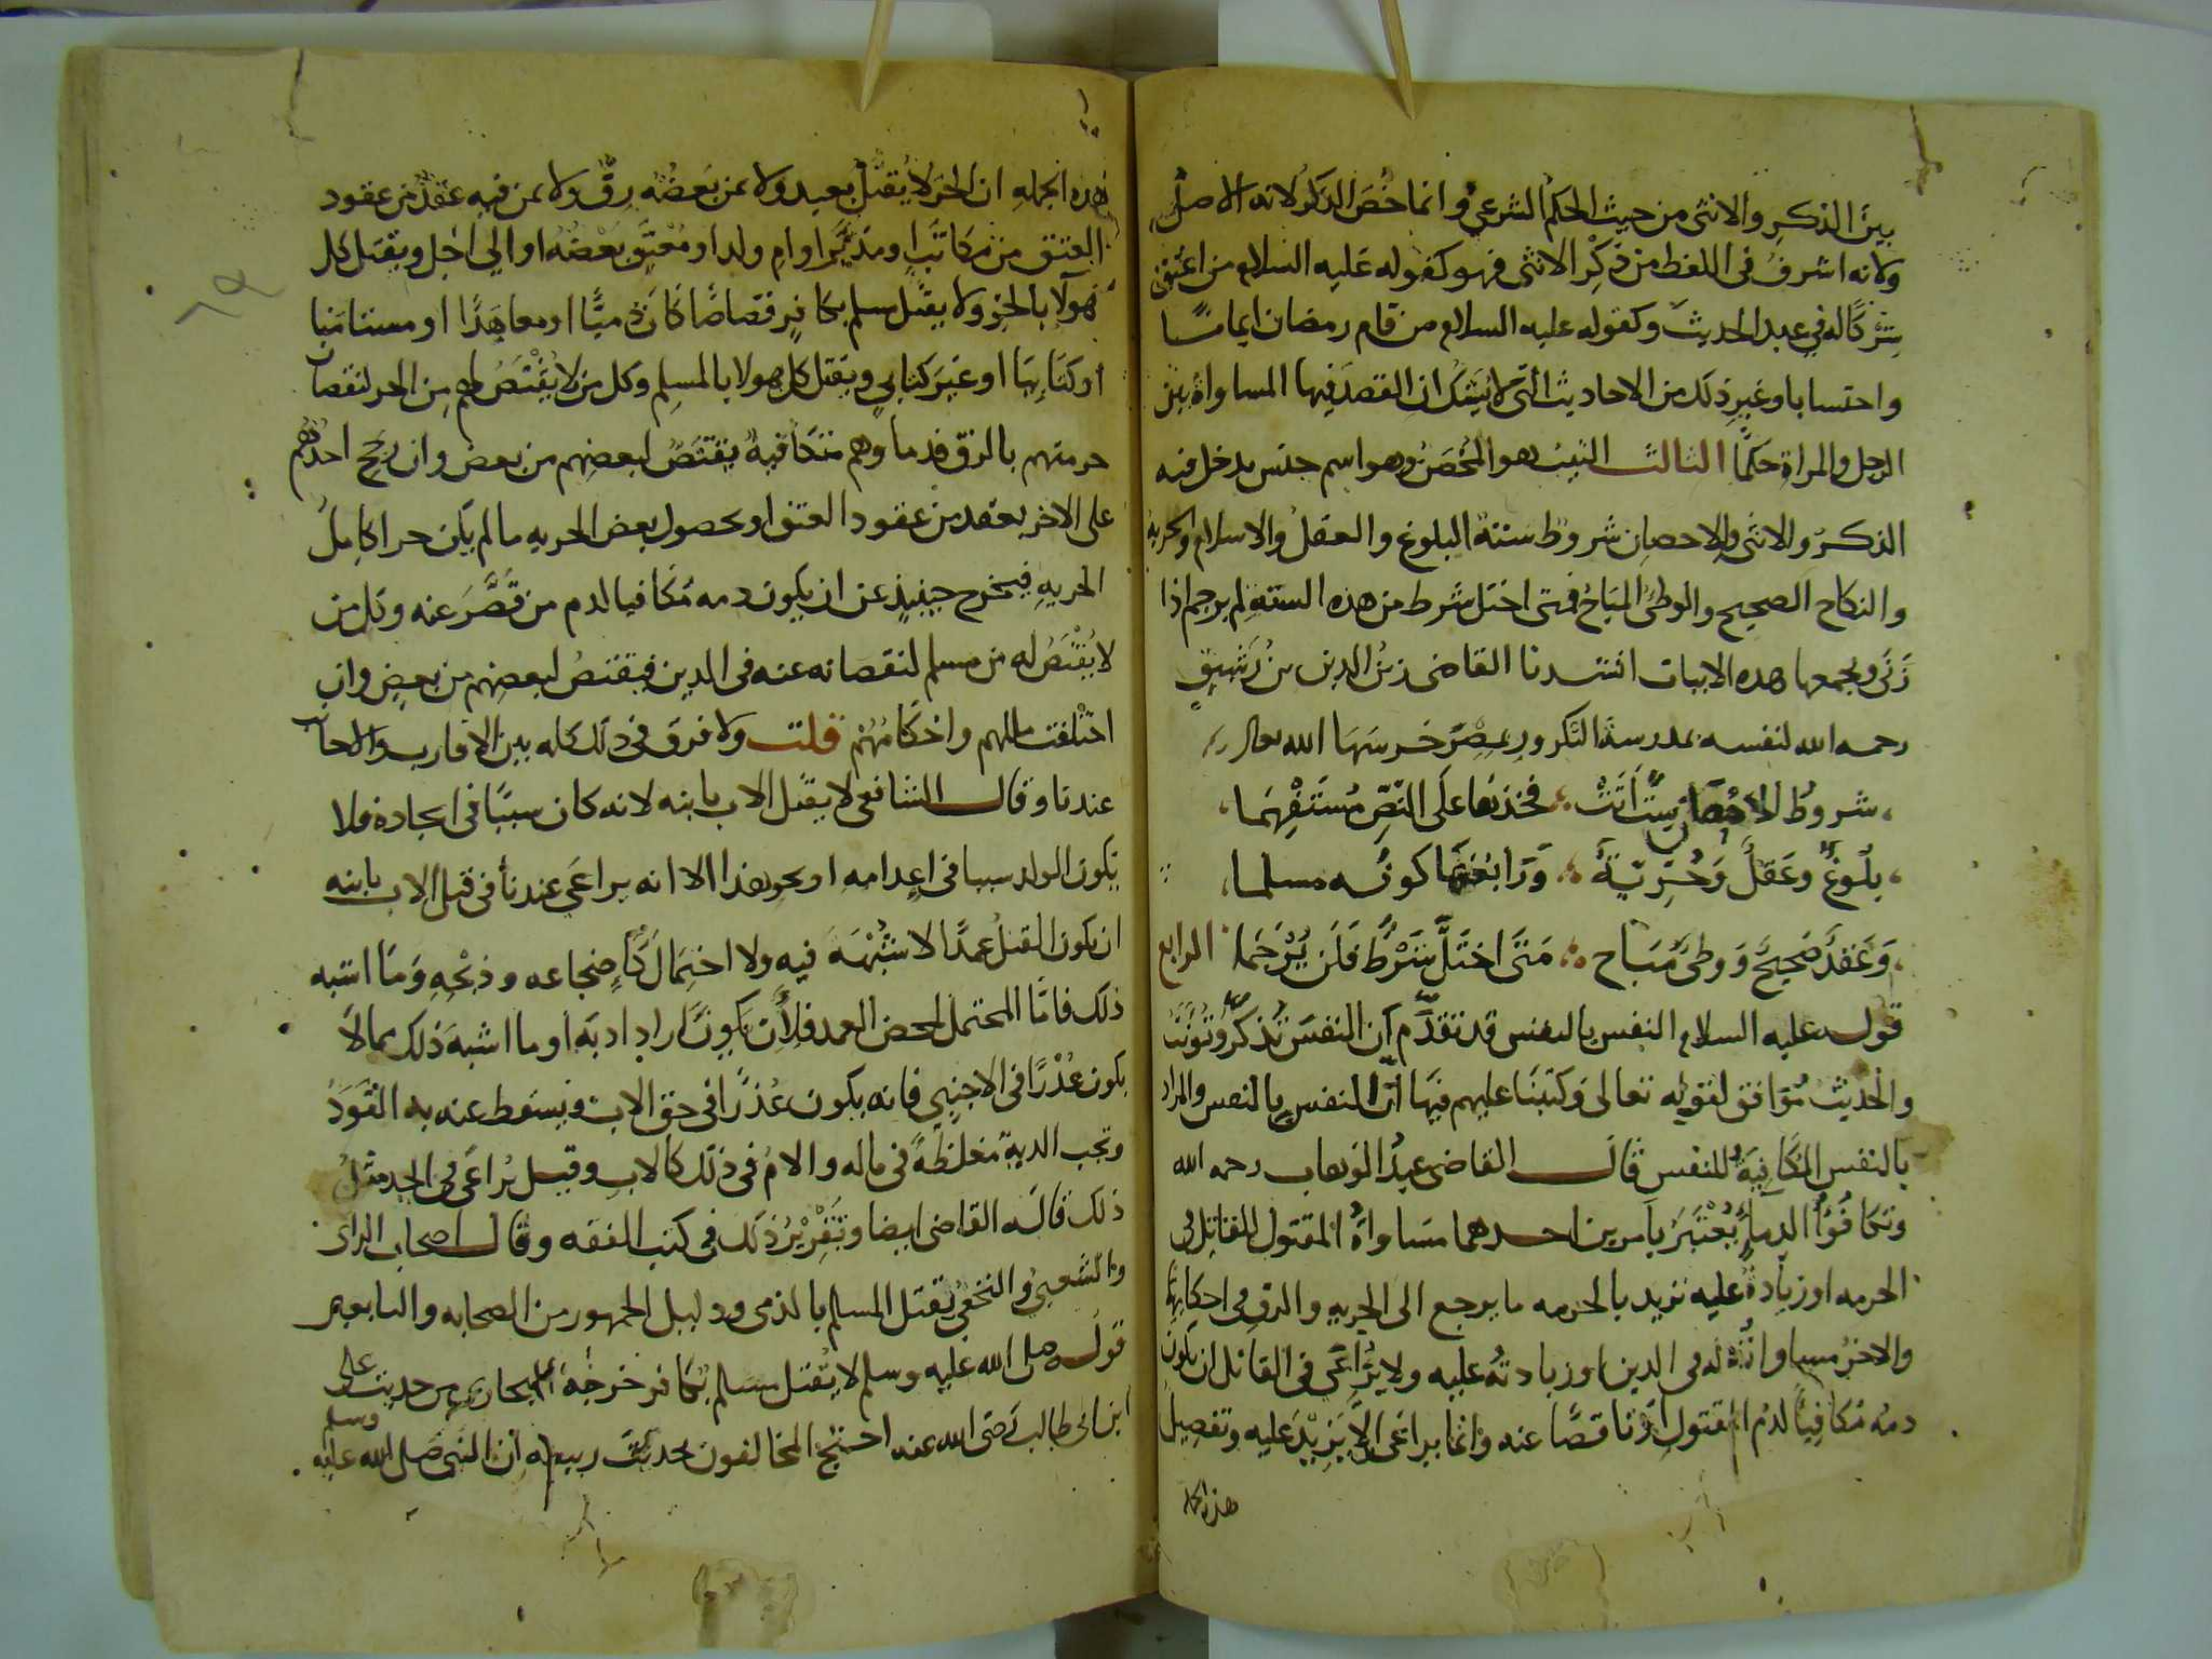 بين الذكر والانثى من حيث الحكم الشرعي وانما خص الذكر لانه الاصل
ولانه اشرف في اللفظ من ذكر الانثى فهو كقوله عليه السلام من اعتق
شركا له في عبد الحديث وكقوله عليه السلام من قام رمضان ايمانا
واحتسابا وغير ذلك من الاحاديث التي لا يشك ان القصد فيها المساواة بين
الرجل والمراة حكما الثالث الثيب هو المحصن وهو اسم جنس يدخل فيه
الذكر والانثى وللاحصان شروط ستة البلوغ والعقل والاسلام والحرية
والنكاح الصحيح والوطئ المباح فمتى اختل شرط من هذه الستة لم يرجم اذا
زنى ويجمعها هذه الابيات انشدنا القاضي زين الدين بن رشيق
رحمه الله لنفسه بمدرسة التكرور بمصر حرسها الله تعالى
شروط الاحصان ست اتت فخذها على النص مستفهما
بلوغ وعقل وحرية ورابعها كونه مسلما
وعقد صحيح ووطئ مباح متى اختل شرط فلن يرجما الرابع
قوله عليه السلام النفس بالنفس قد تقدم ان النفس تذكر وتونث
والحديث موافق لقوله تعالى وكتبنا عليهم فيها ان النفس بالنفس والمراد
بالنفس المكافية للنفس قال القاضي عبد الوهاب رحمه الله
وتكافؤ الدماء يعتبر بامرين احدهما مساواة المقتول للقاتل في
الحرمه او زيادة عليه نريد بالحرمه ما يرجع الى الحريه والرق في احكامها
والاخر مساواته له في الدين او زيادته عليه ولا يراعى في القاتل ان يكون
دمه مكافيا لدم المقتول او ناقصا عنه وانما يراعى الا يزيد عليه وتفصيل
هذه الجمله
هذه الجمله ان الحر لا يقتل بعبد ولا بمن بعضه رق ولا بمن فيه عقد من عقود
العتق من مكاتب او مدبر او ام ولد او معتق بعضه او الى اجل ويقتل كل
هولا بالحر ولا يقتل مسلم بكافر قصاصا كان ذميا او معاهدا او مستامنا
او كتابيا او غير كتابي ويقتل كل هولا بالمسلم وكل من لا يقتص لهم من الحر لنقصان
حرمتهم بالرق فدماوهم متكافية يقتص لبعضهم من بعض وان رجح احدهم
على الاخر بعقد من عقود العتق او بحصول بعض الحريه ما لم يكن حرا كامل
الحريه فيخرج حينيذ عن ان يكون دمه مكافيا لدم من قصر عنه وكل من
لا يقتص له من مسلم لنقصانه عنه في الدين فيقتص لبعضهم من بعض وان
اختلفت مللهم واحكامهم قلت ولا فرق في ذلك كله بين الاقارب والاجانب
عندنا وقال الشافعي لا يقتل الاب بابنه لانه كان سببا في ايجاده فلا
يكون الولد سببا في اعدامه او نحو هذا الا انه يراعى عندنا في قتل الاب بابنه
ان يكون القتل عمدا لا شبهة فيه ولا احتمال كاضجاعه وذبحه وما اشبه
ذلك فاما المحتمل لمحض العمد فلان يكون اراد ادبه او ما اشبه ذلك مما لا
يكون عذرا في الاجنبي فانه يكون عذرا في حق الاب ويسقط عنه به القود
وتجب الدية مغلظة في ماله والام في ذلك كالاب وقيل يراعى في الجد مثل
ذلك قاله القاضي ايضا وتقرير ذلك في كتب الفقه وقال اصحاب الراى
والشعبي والنخعي يقتل المسلم بالذمي ودليل الجمهور من الصحابه والتابعين
قوله صلى الله عليه وسلم لا يقتل مسلم بكافر خرجه البخاري من حديث على
ابن ابي طالب رضي الله عنه احتج المخالفون بحديث ربيعه ان النبي صلى الله عليه وسلم